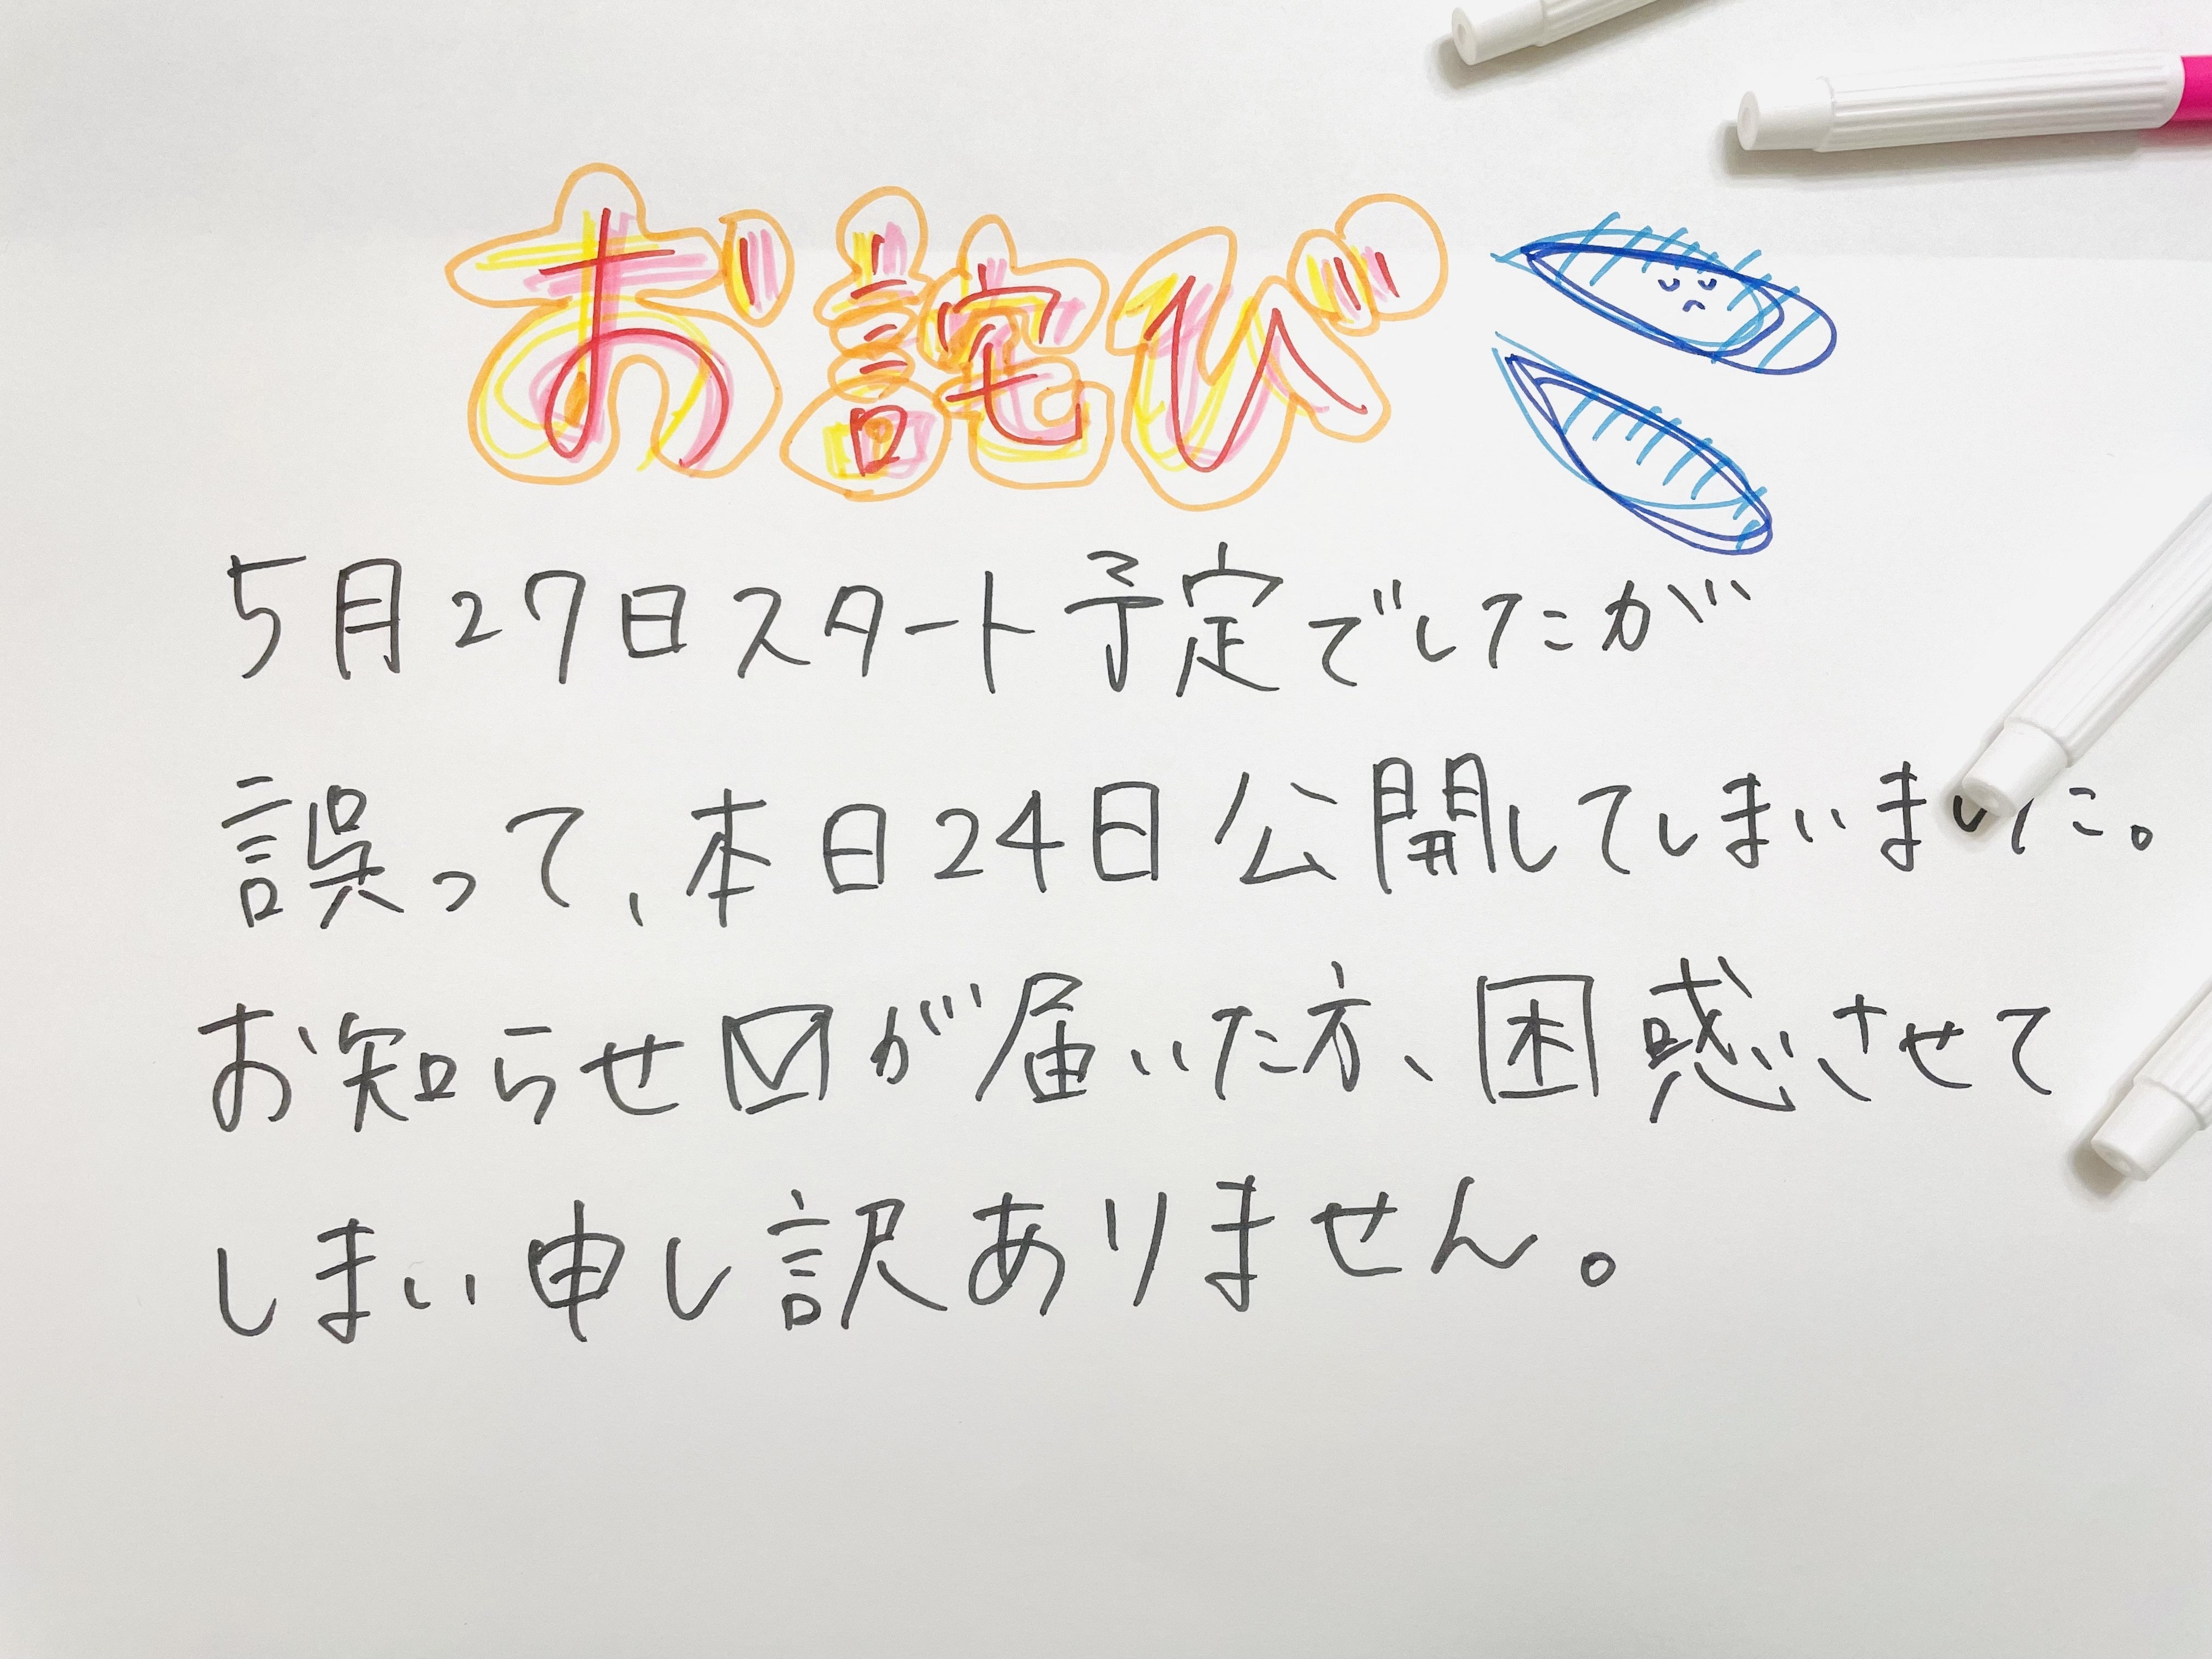 お詫び
5月27日スタート予定でしたが
誤って、本日24日公開してしまいました。
お知らせ✉が届いた方、困惑させて
しまい申し訳ありません。